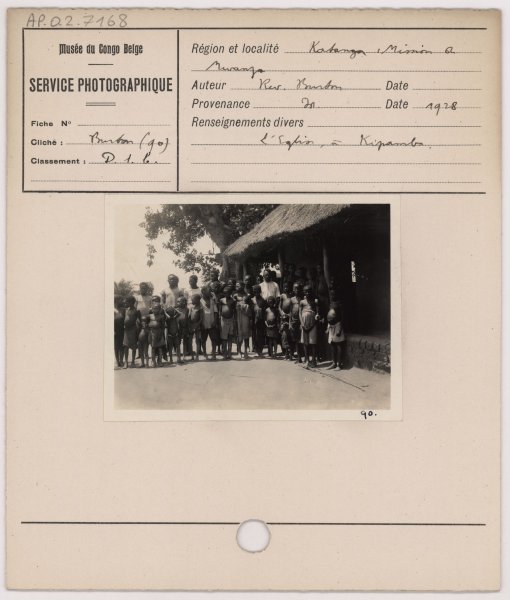 AP.0.2.7168
Musée du Congo Belge
SERVICE PHOTOGRAPHIQUE
Fiche N°
Cliché : Burton (90)
Classement : D.1.6.
Région et localité Katanga, Mission à
Mwanza
Auteur Rev. Burton Date
Provenance Do Date 1928
Renseignements divers
L'Eglise à Kipamba.
90.